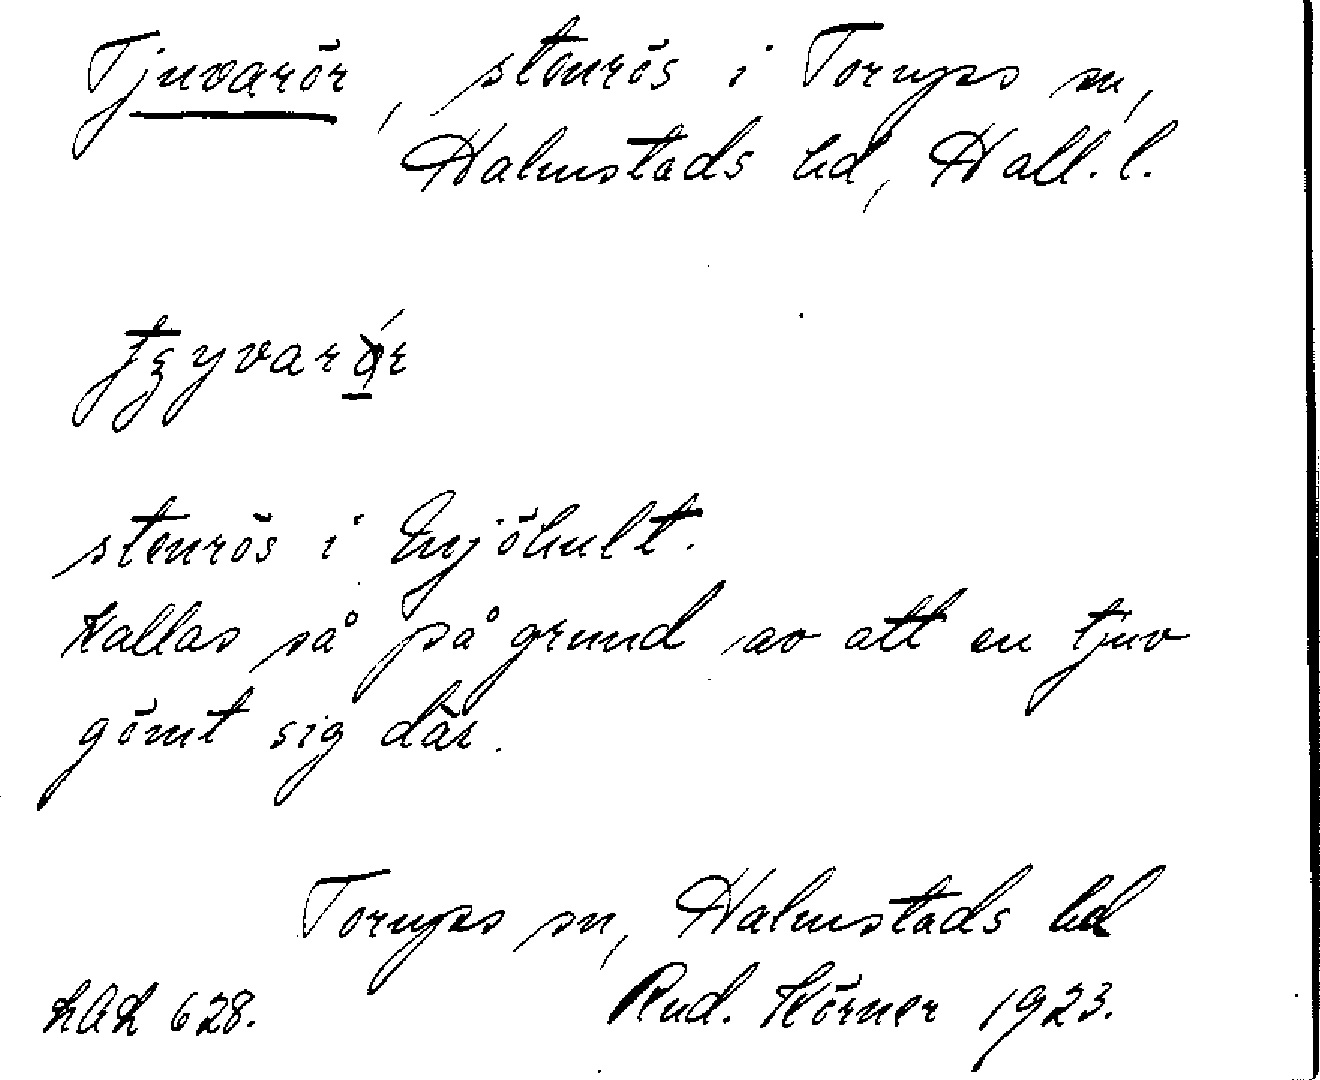 Tjuvarör, stenrös i Torups sn,
Halmstads hd, Hall. l.
stenrös i Enjöhult.
Kallas så på grund av att en tjuv
gömt sig där.
Torups sn, Halmstads hd
LAL 628. Rud. Körner 1923.